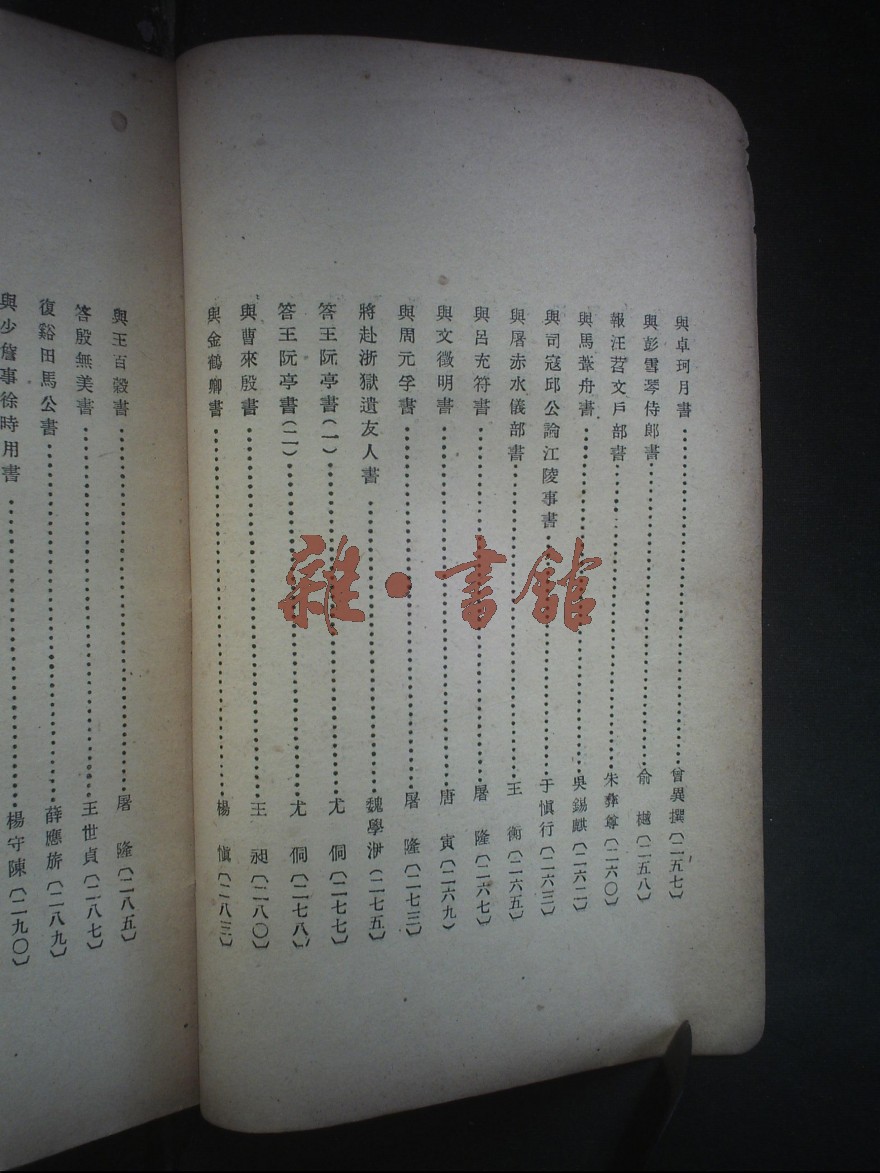 與卓珂月書………曾異撰〔二五七〕
與彭雪琴侍郎書………俞樾〔二五八〕
報汪苕文戶部書………朱彝尊〔二六〇〕
與馬葦舟書………吳錫麒〔二六二〕
與司寇邱公論江陵事書………于愼行〔二六三〕
與屠赤水儀部書………王衡〔二六五〕
與呂充符書………屠隆〔二六七〕
與文徵明書………唐寅〔二六九〕
與周元孚書………屠隆〔二七三〕
將赴浙獄遺友人書………魏學洢〔二七五〕
答王阮亭書(一)………尤侗〔二七七〕
答王阮亭書(二)………尤侗〔二七八〕
與曹來殷書………王昶〔二八〇〕
與金鶴卿書………楊愼〔二八三〕
與王百穀書………屠隆〔二八五〕
答殷無美書………王世貞〔二八七〕
復谿田馬公書………薛應旂〔二八九〕
與少詹事徐時用書………楊守陳〔二九〇〕
雜·書館